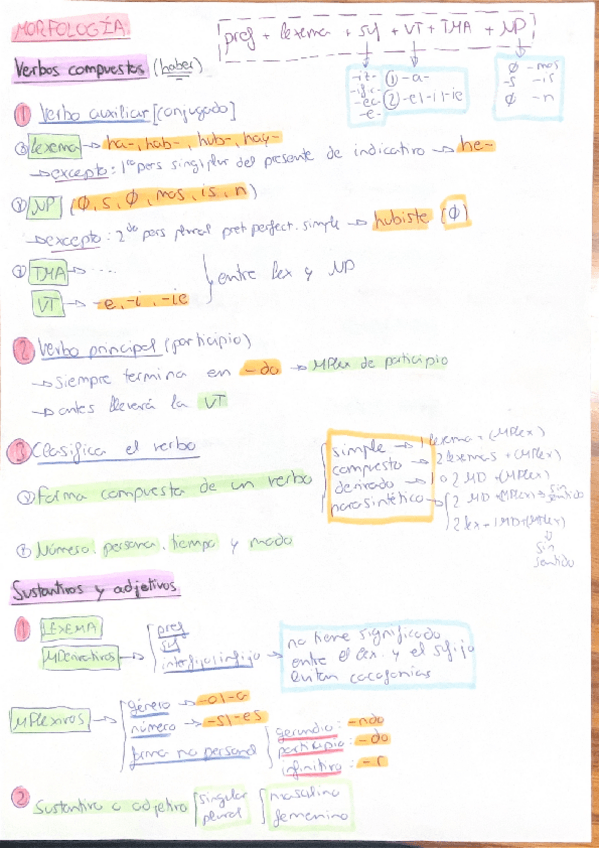 MORFOLOGÍA
pref + lexema + suf + VT + TMA + NP
-iz-
-ific-
-ec-
-e-
① -a-
② -e|-i|-ie
Ø -mos
-s -is
Ø -n
Verbos compuestos (haber)
① Verbo auxiliar [conjugado]
① lexema → ha-, hab-, hub-, hay-
→ excepto: 1ra pers sing/plur del presente de indicativo → he-
② NP (Ø, s, Ø, mos, is, n)
→ excepto: 2da pers plural pret perfect. simple → hubiste (Ø)
③ TMA → ...
VT → -e, -i, -ie
entre lex y NP
② Verbo principal (participio)
→ siempre termina en -do → MFlex de participio
→ antes llevará la VT
③ Clasifica el verbo
simple → 1 lexema + (MFlex)
compuesto → 2 lexemas + (MFlex)
derivado → 1 o 2 MD + (MFlex)
parasintético → 2 MD + (MFlex) → sin sentido
2 lex + 1 MD + (MFlex)
↓
sin
sentido
① Forma compuesta de un verbo
② Número, persona, tiempo y modo
Sustantivos y adjetivos
① LEXEMA
MDerivativos → pref
suf
interfijo/infijo →
no tiene significado
entre el lex. y el sufijo
evitan cacofonías
MFlexivos → género → -o|-a
número → -s|-es
forma no personal
gerundio: -ndo
participio: -do
infinitivo: -r
② Sustantivo o adjetivo
singular
plural
masculino
femenino